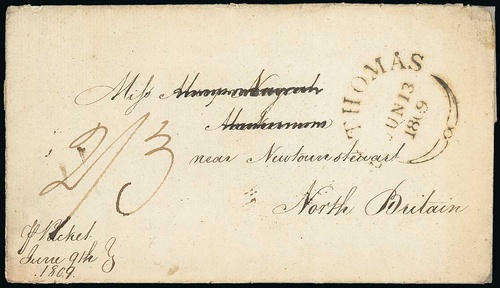 Miss
near Newtownstewart
North Britain
THOMAS
JUN 13
1809
2/3
Packet
June 9th
1809